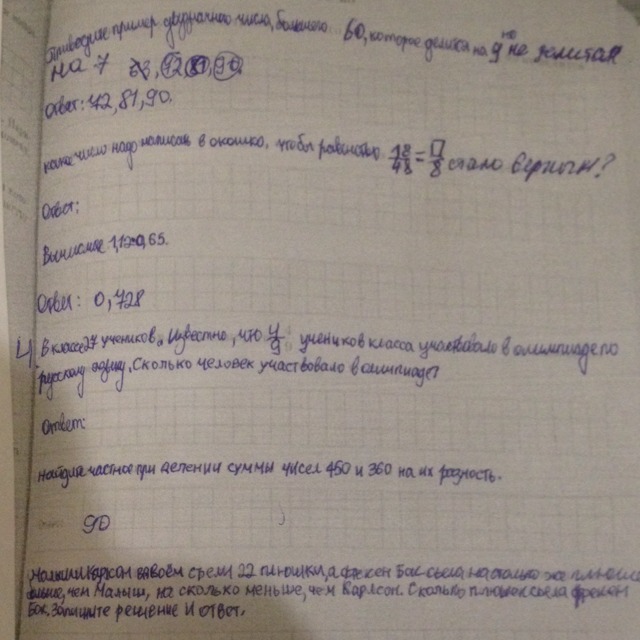 Приведите пример двузначного числа, большего 60, которое делится на 9 но не делится
на 7 63, 72, 81, 90
Ответ: 72, 81, 90.
какое число надо написать в окошко, чтобы равенство 18/48 = □/8 стало верным?
Ответ:
Вычислите 1,12·0,65.
Ответ: 0,728
4 В классе 27 учеников. Известно, что 4/9 учеников класса участвовало в олимпиаде по
русскому языку. Сколько человек участвовало в олимпиаде?
Ответ:
найдите частное при делении суммы чисел 450 и 360 на их разность.
90
вдвоём съели 22 плюшки, а фрекен Бок съела на столько же плюшек
больше, чем Малыш, на сколько меньше, чем Карлсон. Сколько плюшек съела фрекен
Бок. Запишите решение и ответ.